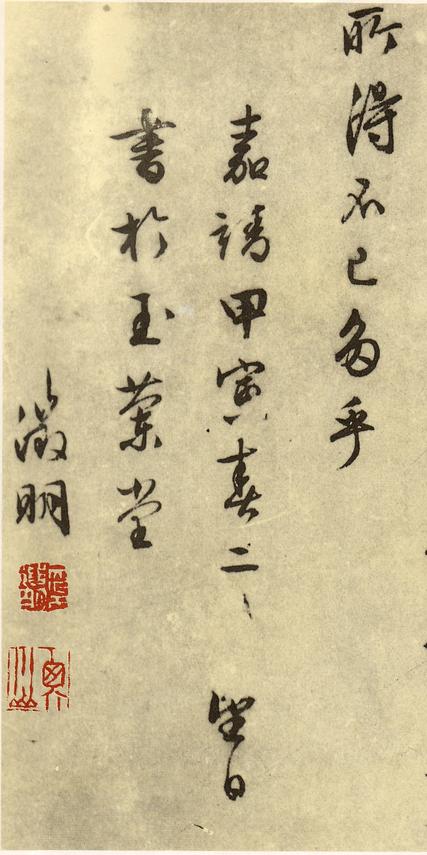 所得不已多乎
嘉靖甲寅春二望日
書於玉蘭堂
徵明